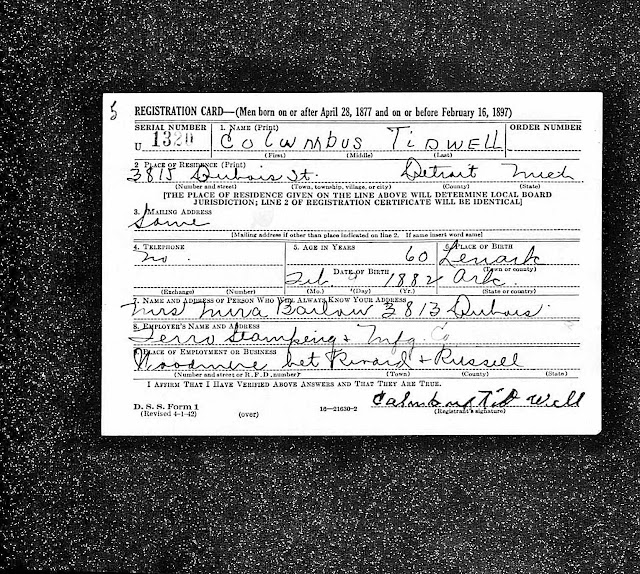 5
REGISTRATION CARD—(Men born on or after April 28, 1877 and on or before February 16, 1897)
SERIAL NUMBER 1. NAME (Print) ORDER NUMBER
U 1320 COLUMBUS TIDWELL
(First) (Middle) (Last)
2. PLACE OF RESIDENCE (Print)
3815 Dubois St. Detroit Mich
(Number and street) (Town, township, village, or city) (County) (State)
[THE PLACE OF RESIDENCE GIVEN ON THE LINE ABOVE WILL DETERMINE LOCAL BOARD
JURISDICTION; LINE 2 OF REGISTRATION CERTIFICATE WILL BE IDENTICAL]
3. MAILING ADDRESS
Same
[Mailing address if other than place indicated on line 2. If same insert word same]
4. TELEPHONE 5. AGE IN YEARS 6. PLACE OF BIRTH
no. 60
(Town or county)
DATE OF BIRTH
Feb. 9 1882 Ark.
(Exchange) (Number) (Mo.) (Day) (Yr.) (State or country)
7. NAME AND ADDRESS OF PERSON WHO WILL ALWAYS KNOW YOUR ADDRESS
Mrs Mira Barlow 3813 Dubois.
8. EMPLOYER'S NAME AND ADDRESS
Ferro Stamping & Mfg. Co
9. PLACE OF EMPLOYMENT OR BUSINESS
bet & Russell
(Number and street or R. F. D. number) (Town) (County) (State)
I AFFIRM THAT I HAVE VERIFIED ABOVE ANSWERS AND THAT THEY ARE TRUE.
D. S. S. Form 1
(Revised 4-1-42) (over) 16—21630-2
Tid Well
(Registrant's signature)